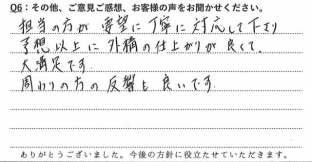 Q6：その他、ご意見ご感想、お客様の声をお聞かせください。
担当の方が 要望に丁寧に対応して下さり
予想以上に 外構の仕上がりが良くて、
大満足です。
周わりの方の反響も良いです。
ありがとうございました。今後の方針に役立たせていただきます。